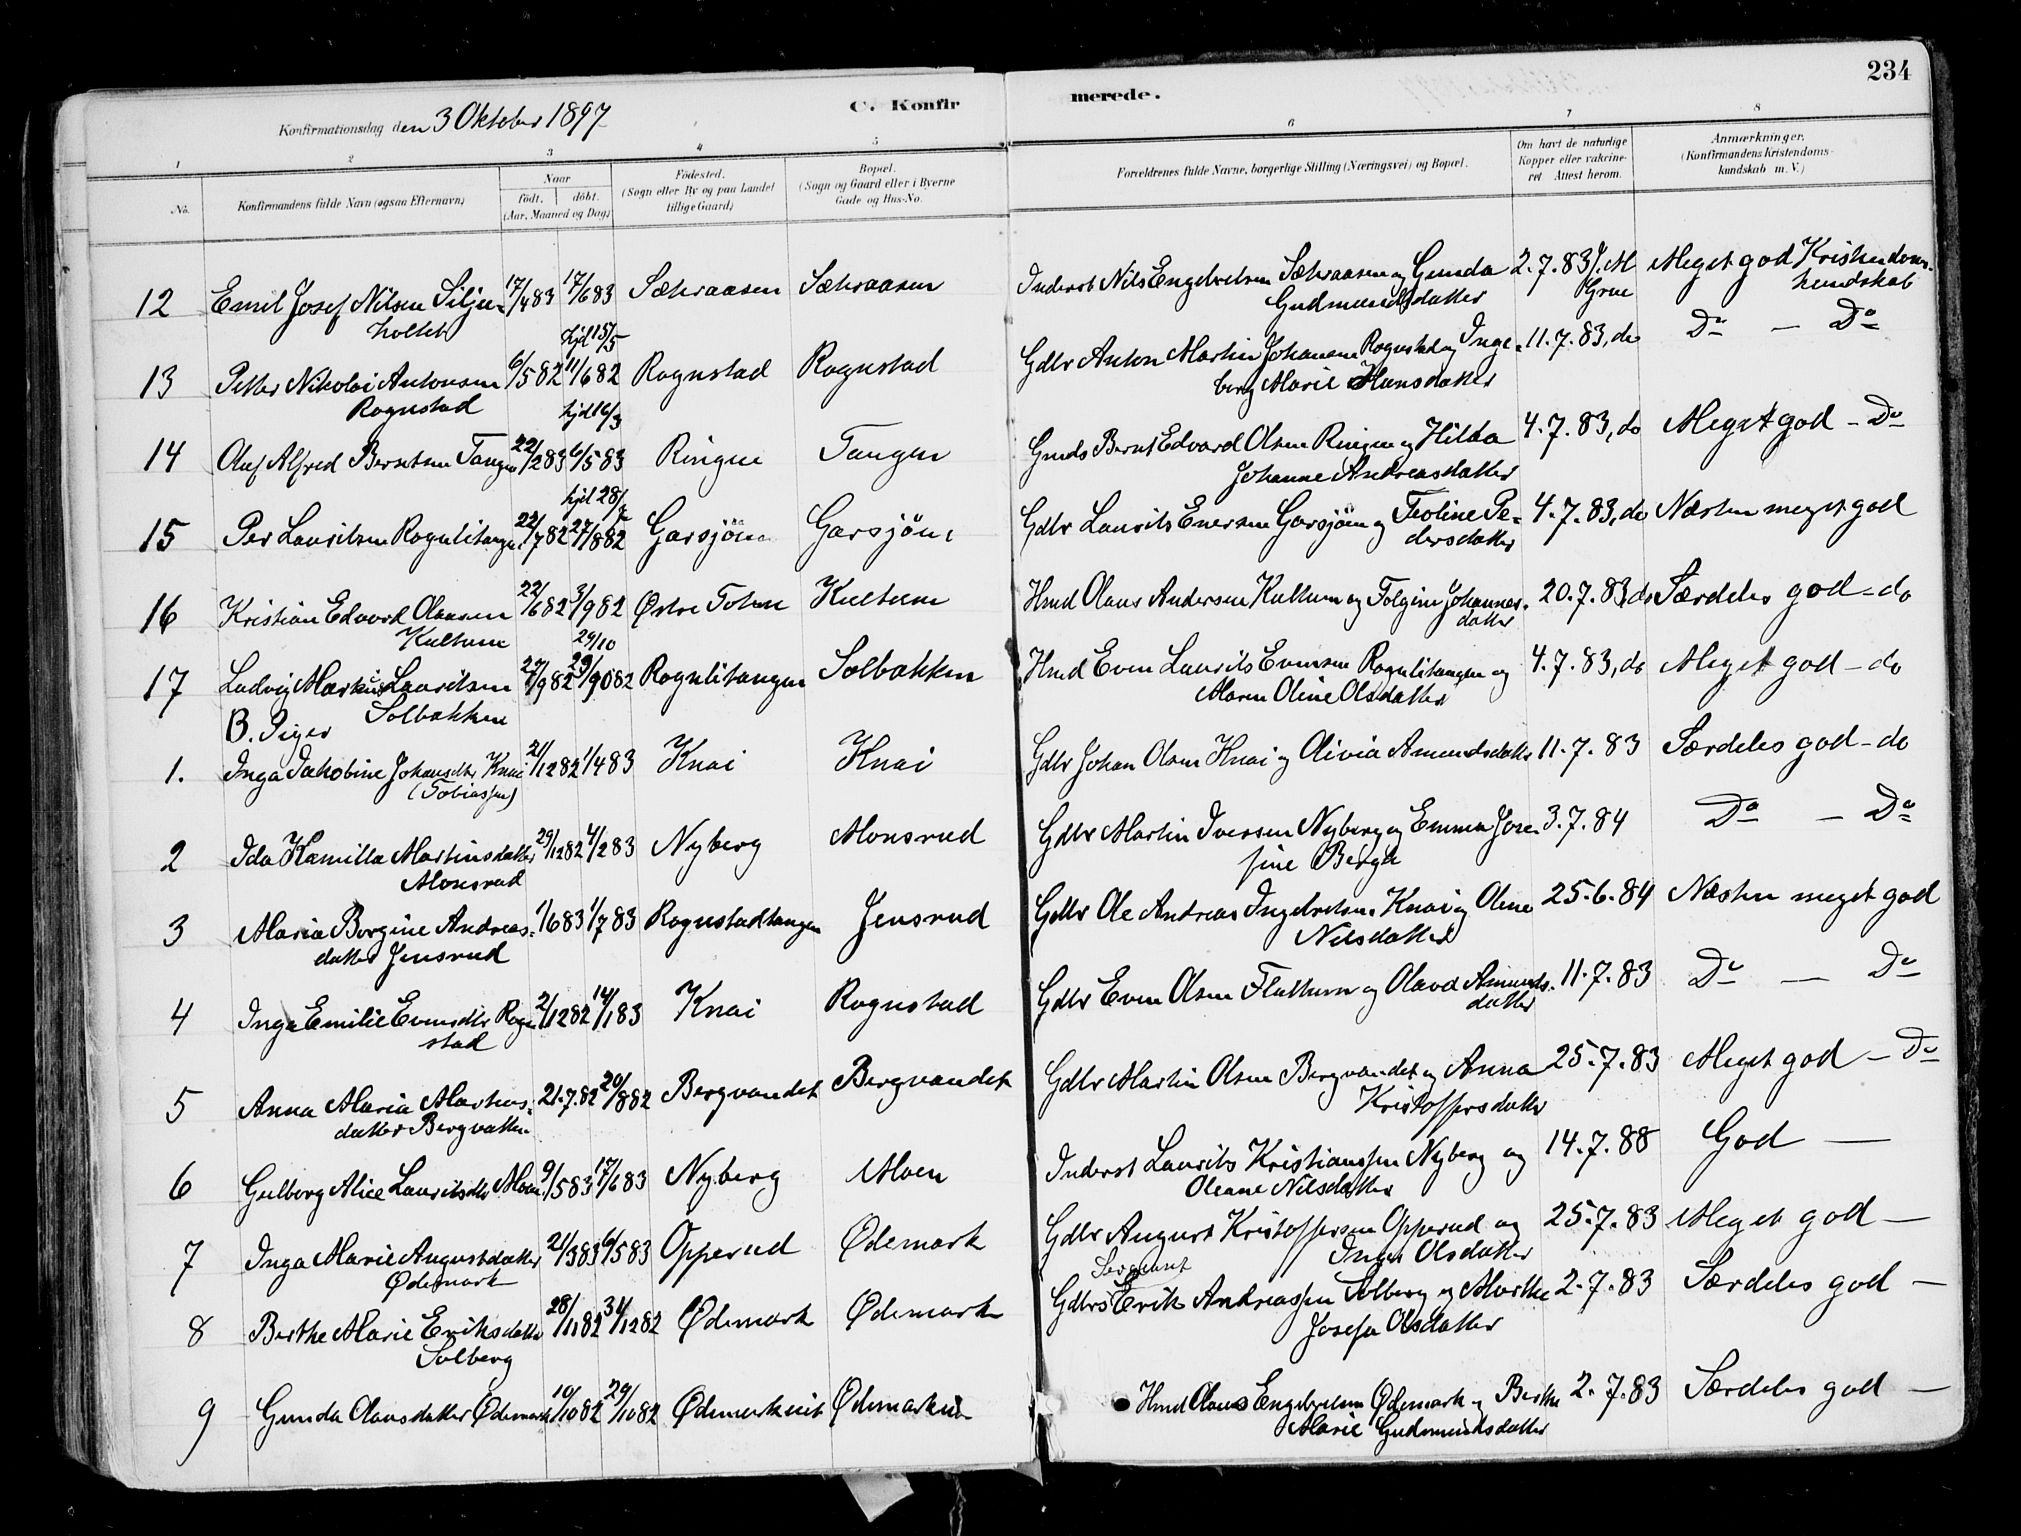 234
C. Konfir merede.
Konfirmationsdag den 3 Oktober 1897
1 2 3 4 5 6 7 8
No.
Konfirmandens fulde Navn (ogsaa Efternavn)
Naar
födt. döbt.
(Aar, Maaned og Dag)
Födested.
(Sogn eller By og paa Landet
tillige Gaard)
Bopæl.
(Sogn og Gaard eller i Byerne
Gade og Hus-No.
Forældrenes fulde Navne, borgerlige Stilling (Næringsvei) og Bopæl.
Om havt de naturlige
Kopper eller vakcine-
ret Attest herom.
Anmærkninger.
(Konfirmandens Kristendoms-
kundskab m. V.)
12 Emil Josef Nilsen Silju- 17/4 83 17/6 83 Sæteraasen Sæteraasen Inderst Nils Engebretsen Sæteraasen og Gunda 2.7.83 Meget god Kristendoms-
holtet hjd 15/5 Gudmundsdatter Grue kundskab
13 Petter Nikolai Antonsen 6/5 82 11/6 82 Rognstad Rognstad Gdbr Anton Martin Johansen Rognstad og Inge- 11.7.83, do Do — Do
Rognstad hjd 16/3 borg Marie Hansdatter
14 Oluf Alfred Berntsen Tangen 22/2 83 6/5 83 Ringen Tangen Gmds Bernt Edvard Olsen Ringen og Hilda 4.7.83, do Meget god - Do
hjd 28/7 Johanne Andreasdatter
15 Per Lauritsen Rognlitangen 22/7 82 27/8 82 Garsjöen Garsjöen Gdbr Laurits Evensen Garsjöen og Teoline Pe- 4.7.83, do Næsten meget god
dersdatter
16 Kristian Edvard Olausen 22/6 82 3/9 82 Østre Toten Kultum Hmd Olaus Andersen Kultum og Tolgine Johannes- 20.7.83, do Særdeles god - do
Kultum 29/10 datter
17 Ludvig Markus Lauritsen 27/9 82 29/10 82 Rognlitangen Solbakken Hmd Even Laurits Evensen Rognlitangen og 4.7.83, do Meget god - do
Solbakken Maren Oline Olsdatter
B. Piger
1. Inga Jakobine Johansdtr Knai 21/12 82 1/4 83 Knai Knai Gdbr Johan Olsen Knai og Olivia Amundsdatter 11.7.83 Særdeles god - do
(Tobiassen)
2 Ida Kamilla Martinsdatter 29/12 82 4/2 83 Nyberg Monsrud Gdbr Martin Iversen Nyberg og Emma Jose- 3.7.84 Do — Do
Monsrud fine Berga
3 Maria Bergine Andreas- 1/6 83 1/7 83 Rognstadtangen Jensrud Gdbr Ole Andreas Ingebretsen Knai og Olene 25.6.84 Næsten meget god
datter Jensrud Nilsdatter
4 Inga Emilie Evensdtr Rogn- 2/12 82 14/1 83 Knai Rognstad Gdbr Even Olsen Flattum og Olava Amunds- 11.7.83 Do — Do
stad datter
5 Anna Maria Martins- 21.7.82 20/8 82 Bergvandet Bergvandet Gdbr Martin Olsen Bergvandet og Anna 25.7.83 Meget god - Do
datter Bergvatten Kristoffersdatter
6 Gulborg Alice Lauritsdtr Moen 9/5 83 17/6 83 Nyberg Moen Inderst Laurits Kristianssen Nyberg og 14.7.88 God —
Oleane Nilsdatter
7 Inga Marie Augustdatter 21/3 83 6/5 83 Opperud Ødemark Gdbr August Kristoffersen Opperud og 25.7.83 Meget god —
Ødemark Inger Olsdatter
Sergeant
8 Berthe Marie Eriksdatter 28/11 82 31/12 82 Ødemark Ødemark Gdbrs Erik Andreassen Solberg og Marthe 2.7.83 Særdeles god —
Solberg Josefa Olsdatter
9 Gunda Olausdatter Ødemark 10/10 82 29/10 82 Ødemarkeiet Hmd Olaus Engebretsen Ødemark og Berthe 2.7.83 Særdeles god —
Marie Gudmundsdatter